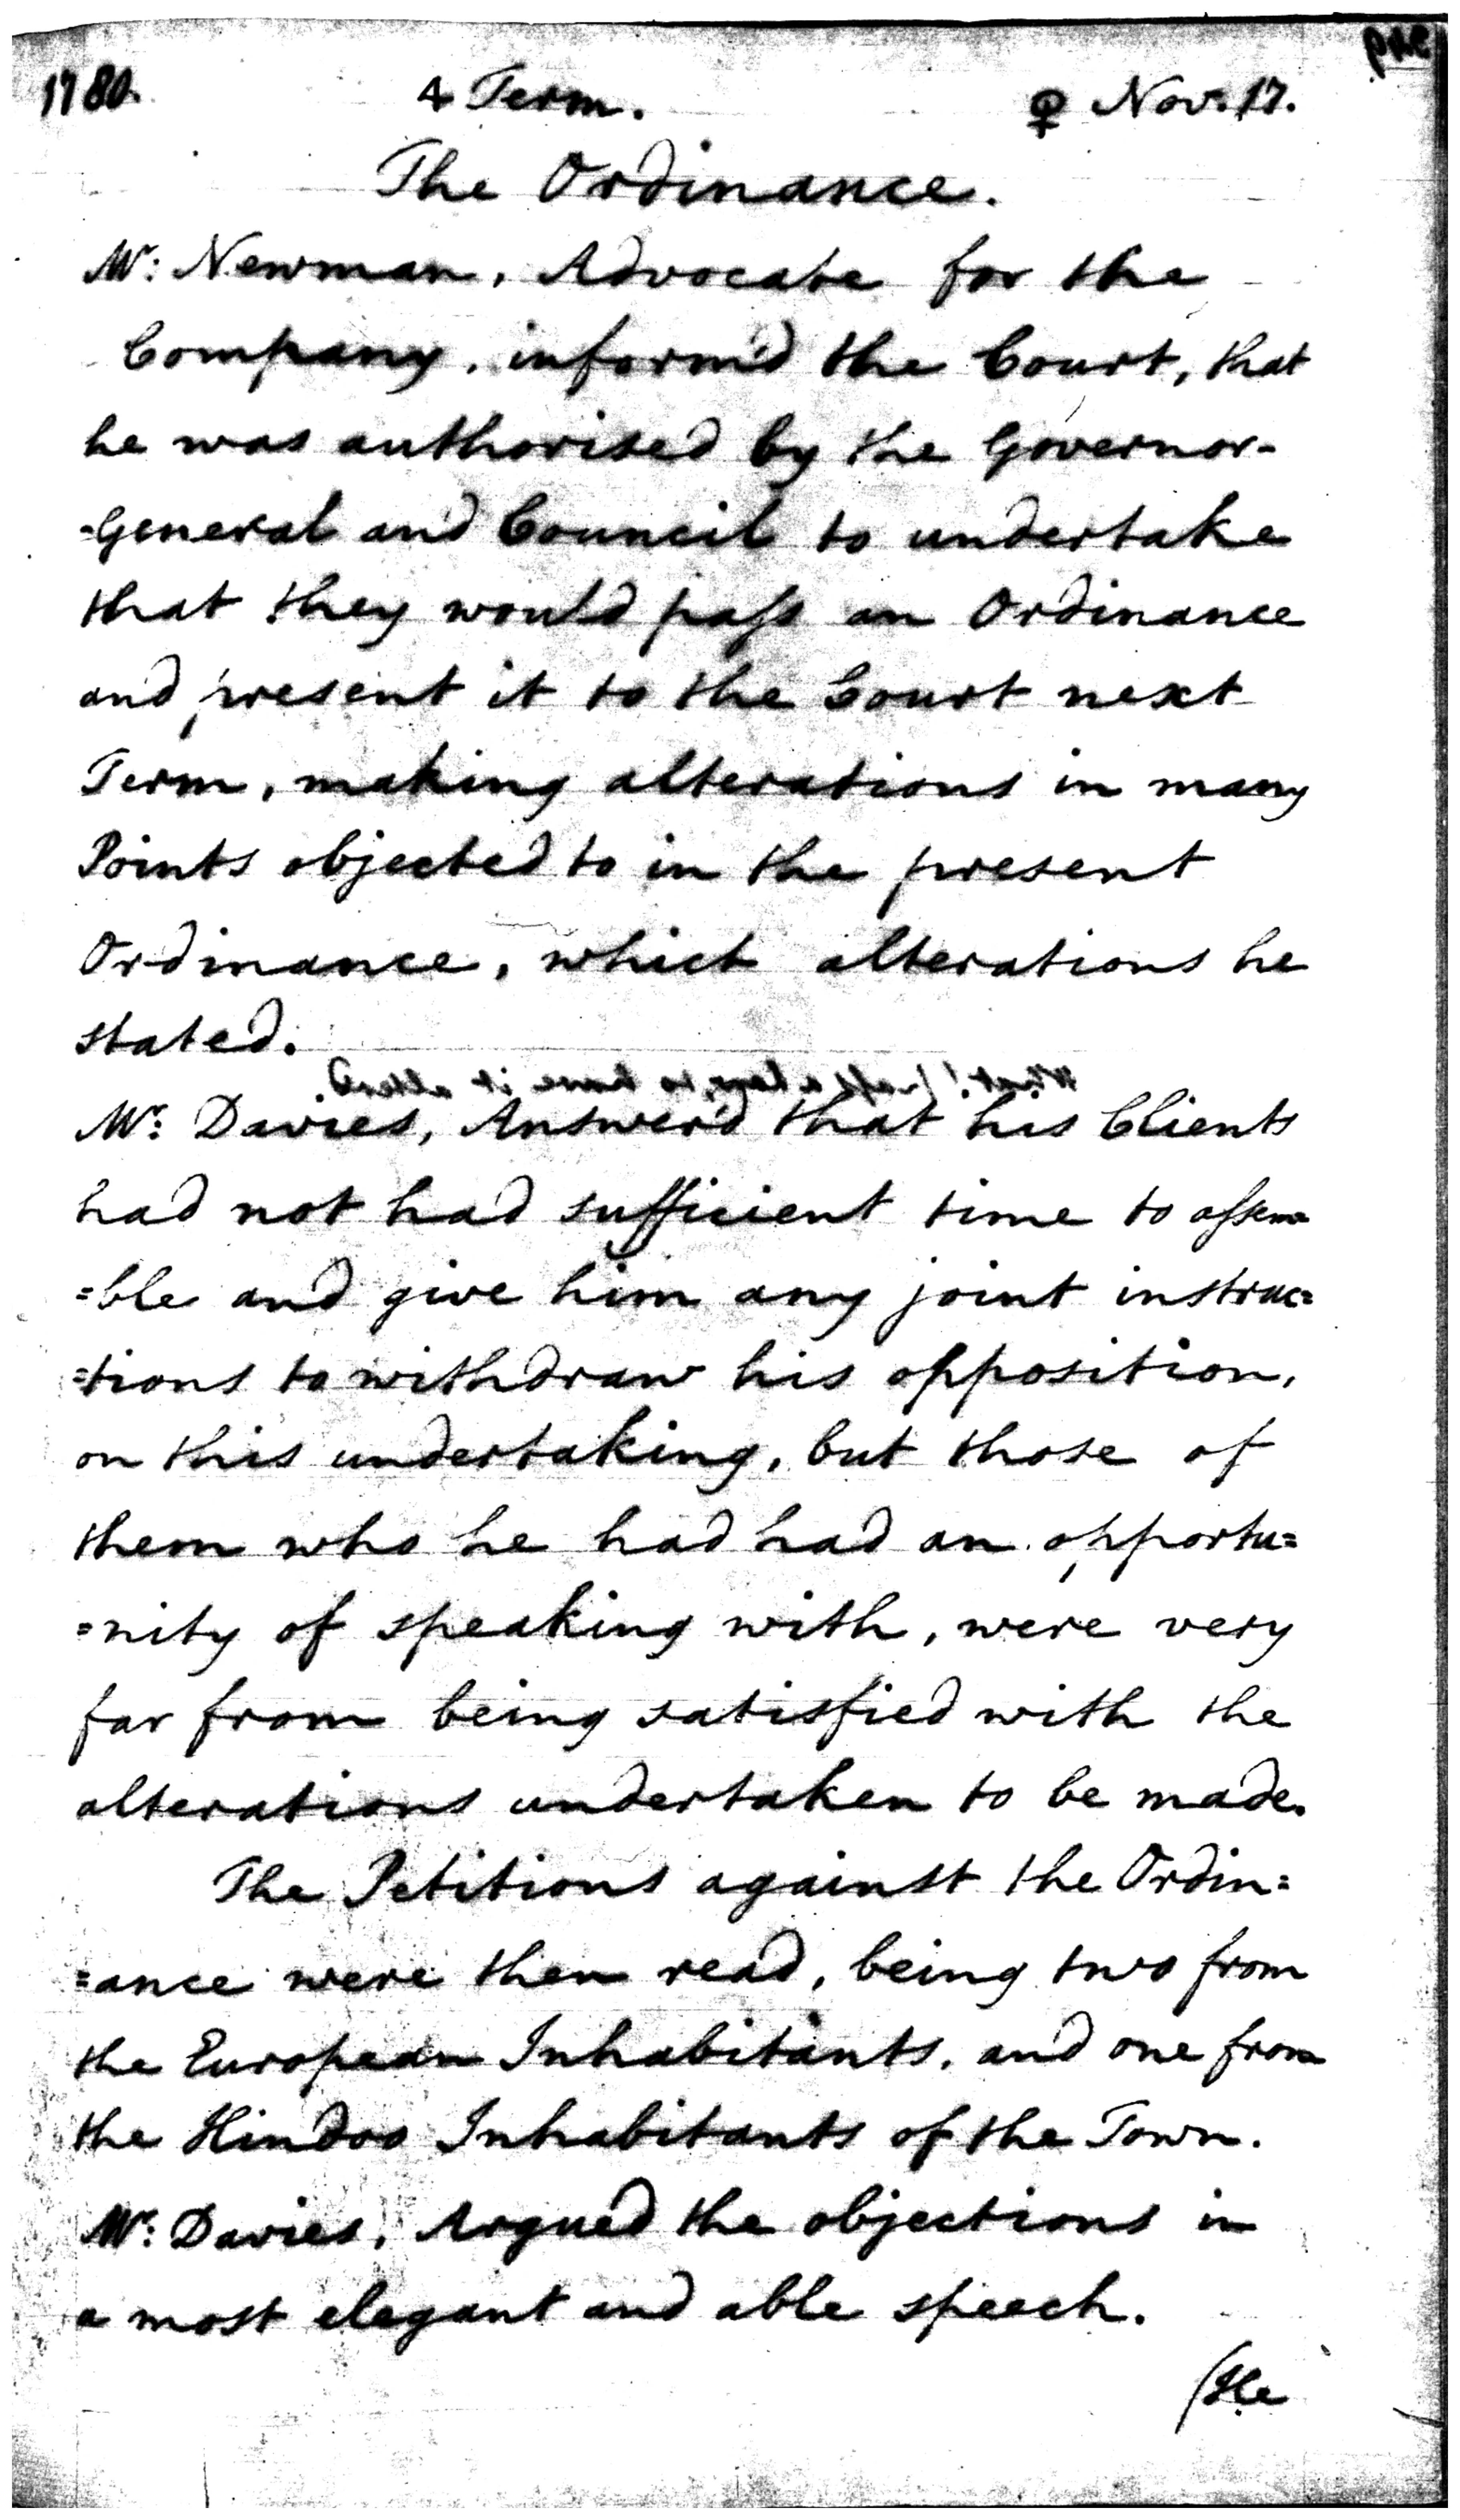 1780. 4 Term. ♀ Nov. 17.
The Ordinance.
Mr: Newman, Advocate for the
Company, inform'd the Court, that
he was authorised by the Governor-
-General and Council to undertake
that they would pass an Ordinance
and present it to the Court next
Term, making alterations in many
Points objected to in the present
Ordinance, which alterations he
stated.
What! pass a law, to have it alter'd.
Mr: Davies, Answer'd that his Clients
had not had sufficient time to assem=
=ble and give him any joint instruc=
=tions to withdraw his opposition,
on this undertaking, but those of
them who he had had an opportu=
=nity of speaking with, were very
far from being satisfied with the
alterations undertaken to be made.
The Petitions against the Ordin=
=ance were then read, being two from
the European Inhabitants, and one from
the Hindoo Inhabitants of the Town.
Mr: Davies, Argued the objections in
a most elegant and able speech.
(He